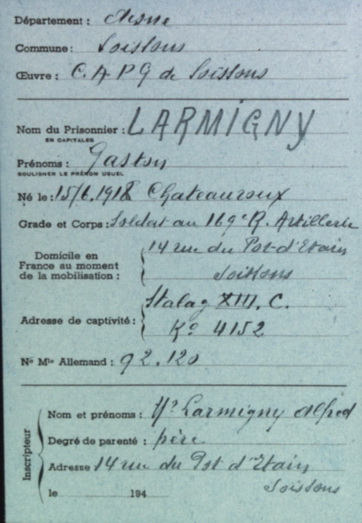 Département : Aisne
Commune : Soissons
Œuvre : C.A.P.G de Soissons
Nom du Prisonnier : LARMIGNY
EN CAPITALES
Prénoms : Gaston
SOULIGNER LE PRÉNOM USUEL
Né le : 15/6.1918 Chateauroux
Grade et Corps : Soldat au 169e R. Artillerie
Domicile en France au moment de la mobilisation : 14 rue du Pot-d'Etain
Soissons
Adresse de captivité : Stalag XIII. C.
Ko 4152
No Mle Allemand : 92.120
Inscripteur
Nom et prénoms : Mr Larmigny Alfred
Degré de parenté : père
Adresse 14 rue du Pot d'Etain
le 194 Soissons